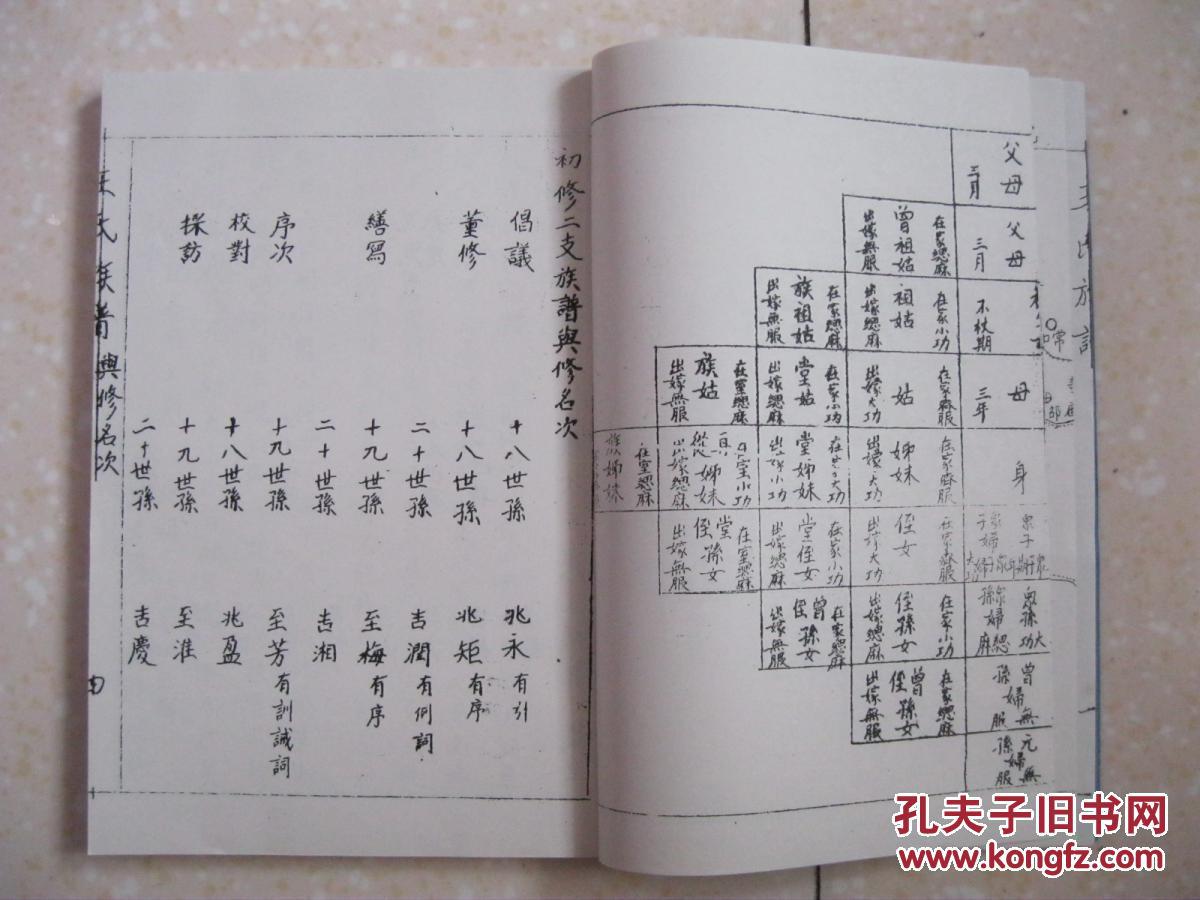 初修二支族譜與修名次
倡議 十八世孫 兆永 有引
董修 十八世孫 兆矩 有序
二十世孫 吉潤 有例詞
繕寫 十九世孫 至梅 有序
二十世孫 吉湘
序次 十九世孫 至芳 有訓誡詞
校對 十八世孫 兆盈
採訪 十九世孫 至淮
二十世孫 吉慶
氏族譜與修名次
父母 三月
父母 三月
不杖期
母 三年
身
曾孫婦無服
元孫婦無服
在家緦麻 曾祖姑 出嫁無服
在家小功 祖姑 出嫁緦麻
在家緦麻 族祖姑 出嫁無服
在家齊服 姑 出嫁大功
在家小功 堂姑 出嫁緦麻
在室緦麻 族姑 出嫁無服
在家齊服 姊妹 出嫁大功
堂姊妹 出嫁小功
從姊妹 出嫁緦麻
在室緦麻 族姊妹
在家齊服 侄女 出嫁大功
在家小功 堂侄女 出嫁緦麻
在室緦麻 堂侄孫女 出嫁無服
在家小功 侄孫女 出嫁緦麻
在家緦麻 曾侄孫女 出嫁無服
在家緦麻 曾侄孫女 出嫁無服
孔夫子旧书网
www.kongfz.com